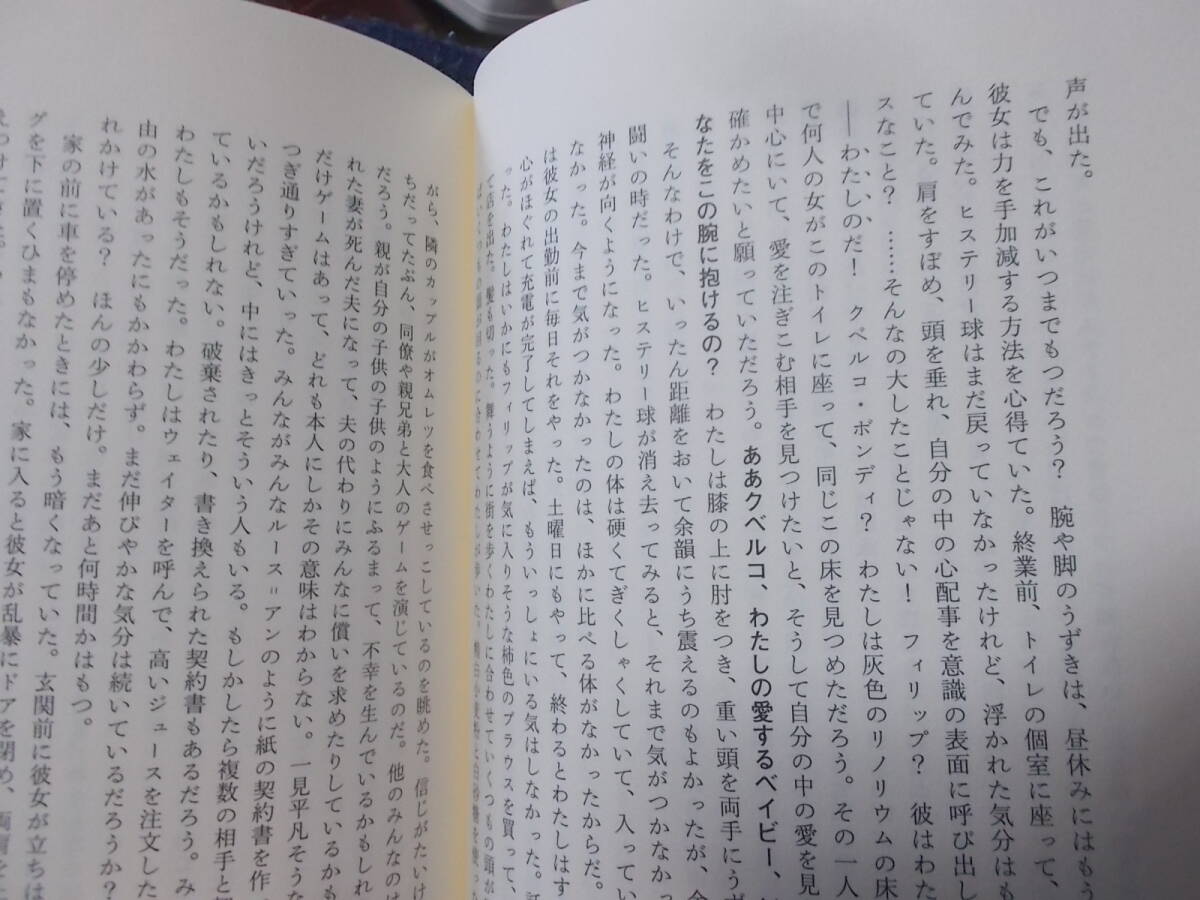 声が出た。
でも、これがいつまでもつだろう？　腕や脚のうずきは、昼休みにはもう
んでみた。ヒステリー球はまだ戻っていなかったけれど、浮かれた気分はも
彼女は力を手加減する方法を心得ていた。終業前、トイレの個室に座って、
ていた。肩をすぼめ、頭を垂れ、自分の中の心配事を意識の表面に呼び出し
スなこと？　……そんなの大したことじゃない！　フィリップ？　彼はわた
――わたしのだ！　クベルコ・ボンディ？　わたしは灰色のリノリウムの床
で何人の女がこのトイレに座って、同じこの床を見つめただろう。その一人
中心にいて、愛を注ぎこむ相手を見つけたいと、そうして自分の中の愛を見
確かめたいと願っていただろう。ああクベルコ、わたしの愛するベイビー、
なたをこの腕に抱けるの？　わたしは膝の上に肘をつき、重い頭を両手にう
そんなわけで、いったん距離をおいて余韻にうち震えるのもよかったが、
闘いの時だった。ヒステリー球が消え去ってみると、それまで気がつかなか
神経が向くようになった。わたしの体は硬くてぎくしゃくしていて、入ってい
なかった。今まで気がつかなかったのは、ほかに比べる体がなかったからだ。
は彼女の出勤前に毎日それをやった。土曜日にもやって、終わるとわたしはす
心がほぐれて充電が完了してしまえば、もういっしょにいる気はしなかった。
て店を出た。髪も切った。
った。わたしはいかにもフィリップが気に入りそうな柿色のブラウスを買って、
舞うように街を歩くわたしに合わせていくつもの頭が
がら、隣のカップルがオムレツを食べさせっこしているのを眺めた。信じがたいけ
ちだってたぶん、同僚や親兄弟と大人のゲームを演じているのだ。他のみんなのは
だろう。親が自分の子供の子供のようにふるまって、不幸を生んでいるかもしれ
れた妻が死んだ夫になって、夫の代わりにみんなに償いを求めたりしているかも
だけゲームはあって、どれも本人にしかその意味はわからない。一見平凡そうな
つぎ通りすぎていった。みんながみんなルース＝アンのように紙の契約書を作
いだろうけれど、中にはきっとそういう人もいる。もしかしたら複数の相手と
ているかもしれない。破棄されたり、書き換えられた契約書もあるだろう。み
わたしもそうだった。わたしはウェイターを呼んで、高いジュースを注文した
由の水があったにもかかわらず。まだ伸びやかな気分は続いているだろうか？
れかけている？　ほんの少しだけ。まだあと何時間かはもつ。
家の前に車を停めたときには、もう暗くなっていた。玄関前に彼女が立ちは
グを下に置くひまもなかった。家に入ると彼女が乱暴にドアを閉め、両肩を